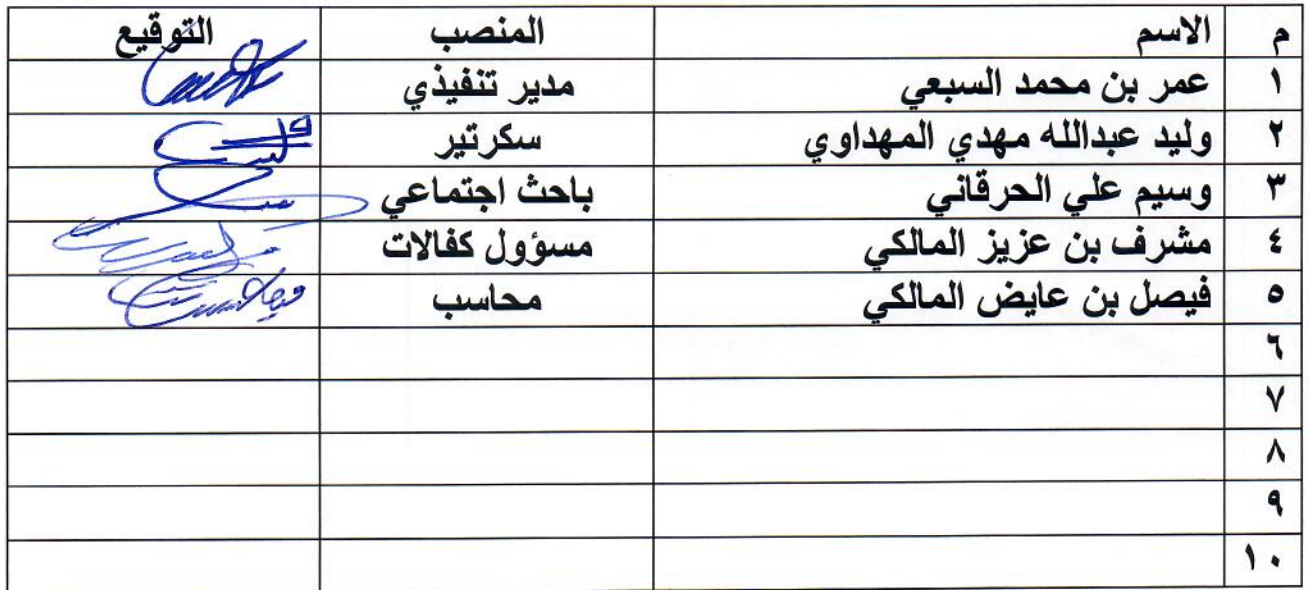 م الاسم المنصب التوقيع
١ عمر بن محمد السبعي مدير تنفيذي
٢ وليد عبدالله مهدي المهداوي سكرتير
٣ وسيم علي الحرقاني باحث اجتماعي
٤ مشرف بن عزيز المالكي مسؤول كفالات
٥ فيصل بن عايض المالكي محاسب
٦
٧
٨
٩
١٠